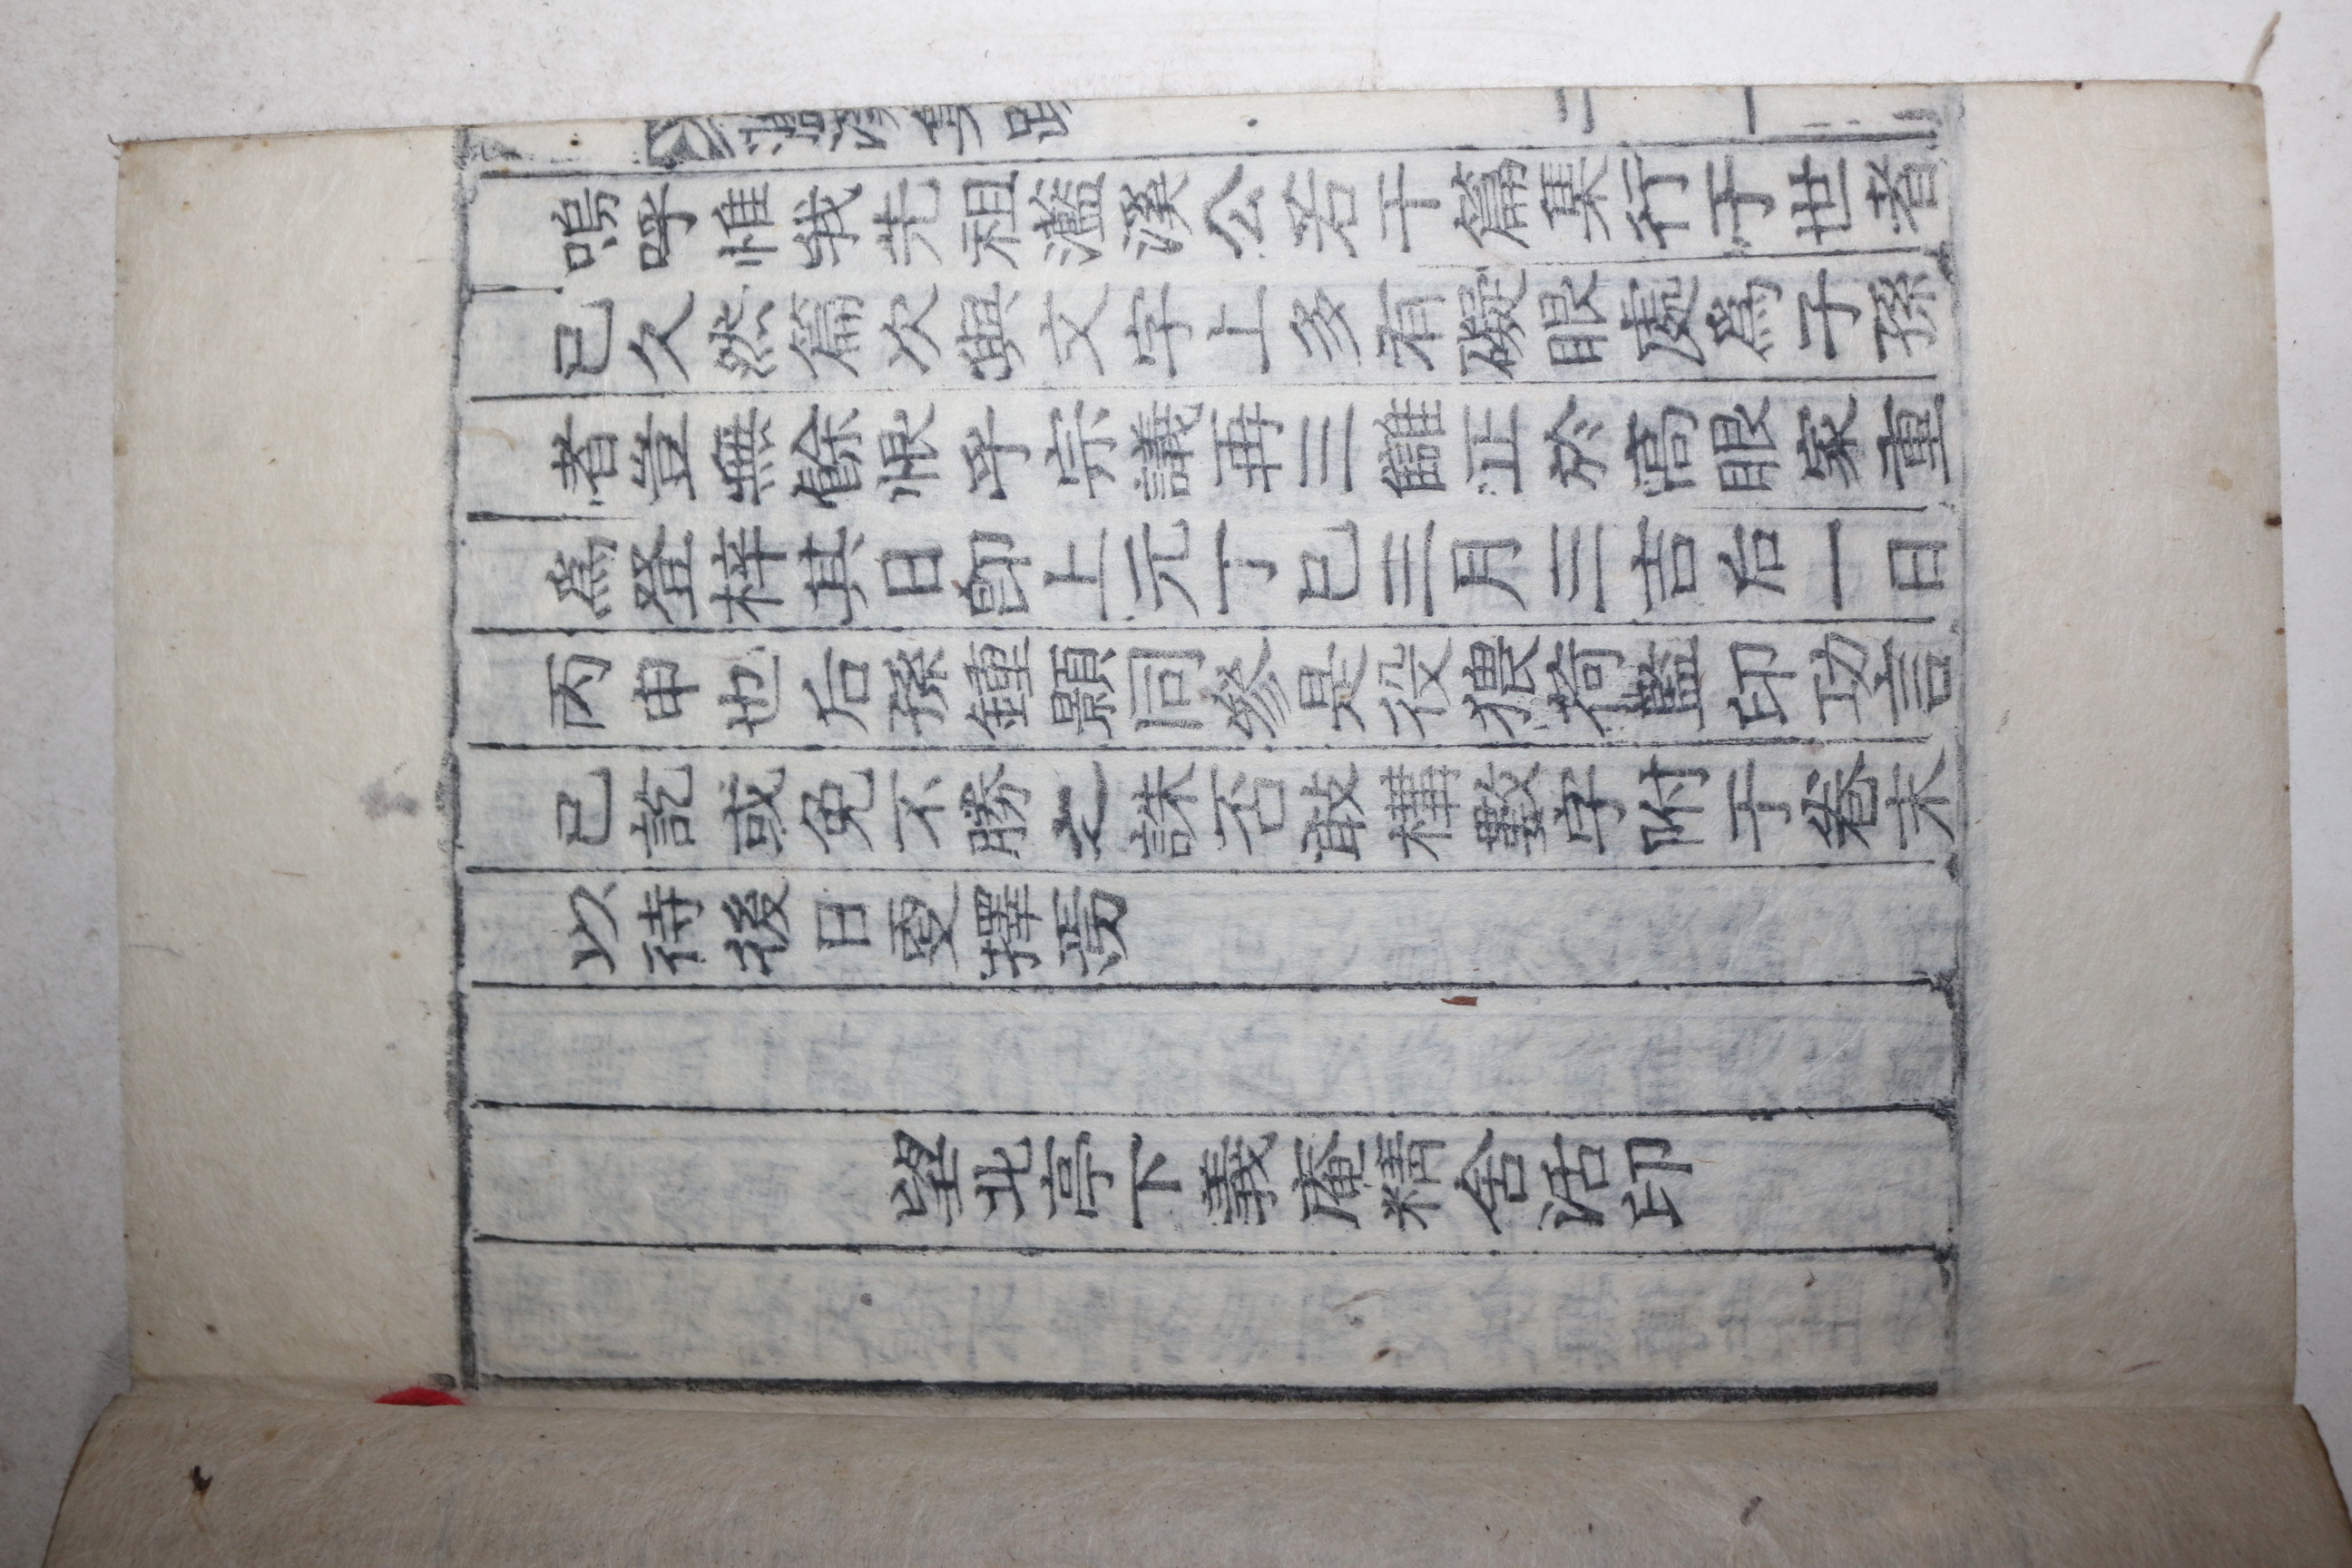 灆溪集跋
二
一
嗚呼惟我先祖灆溪公若干篇集行于世者
已久然篇次與文字上多有礙眼處爲子孫
者豈無餘恨乎宗議再三讎正於高眼家重
爲登梓其日卽上元丁巳三月三吉后一日
丙申也后孫鍾顥同參是役猥荷監印功言
已訖或免不勝之誅否敢構數字附于卷末
以待後日更擇焉
望北亭下義庵精舍活印